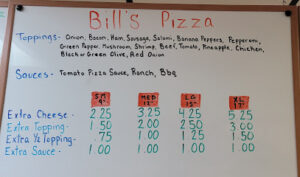 Bill's Pizza
Toppings - Onion, Bacon, Ham, Sausage, Salami, Banana Peppers, Pepperoni,
Green Pepper, Mushroom, Shrimp, Beef, Tomato, Pineapple, Chicken,
Black or Green Olive, Red Onion
Sauces - Tomato Pizza Sauce, Ranch, Bbq
SM MED LG XL
9" 12" 15"
Extra Cheese - 2.25 3.25 4.25 5.25
Extra Topping - 1.50 2.00 2.50 3.00
Extra ½ Topping - .75 1.00 1.25 1.50
Extra Sauce - 1.00 1.00 1.00 1.00